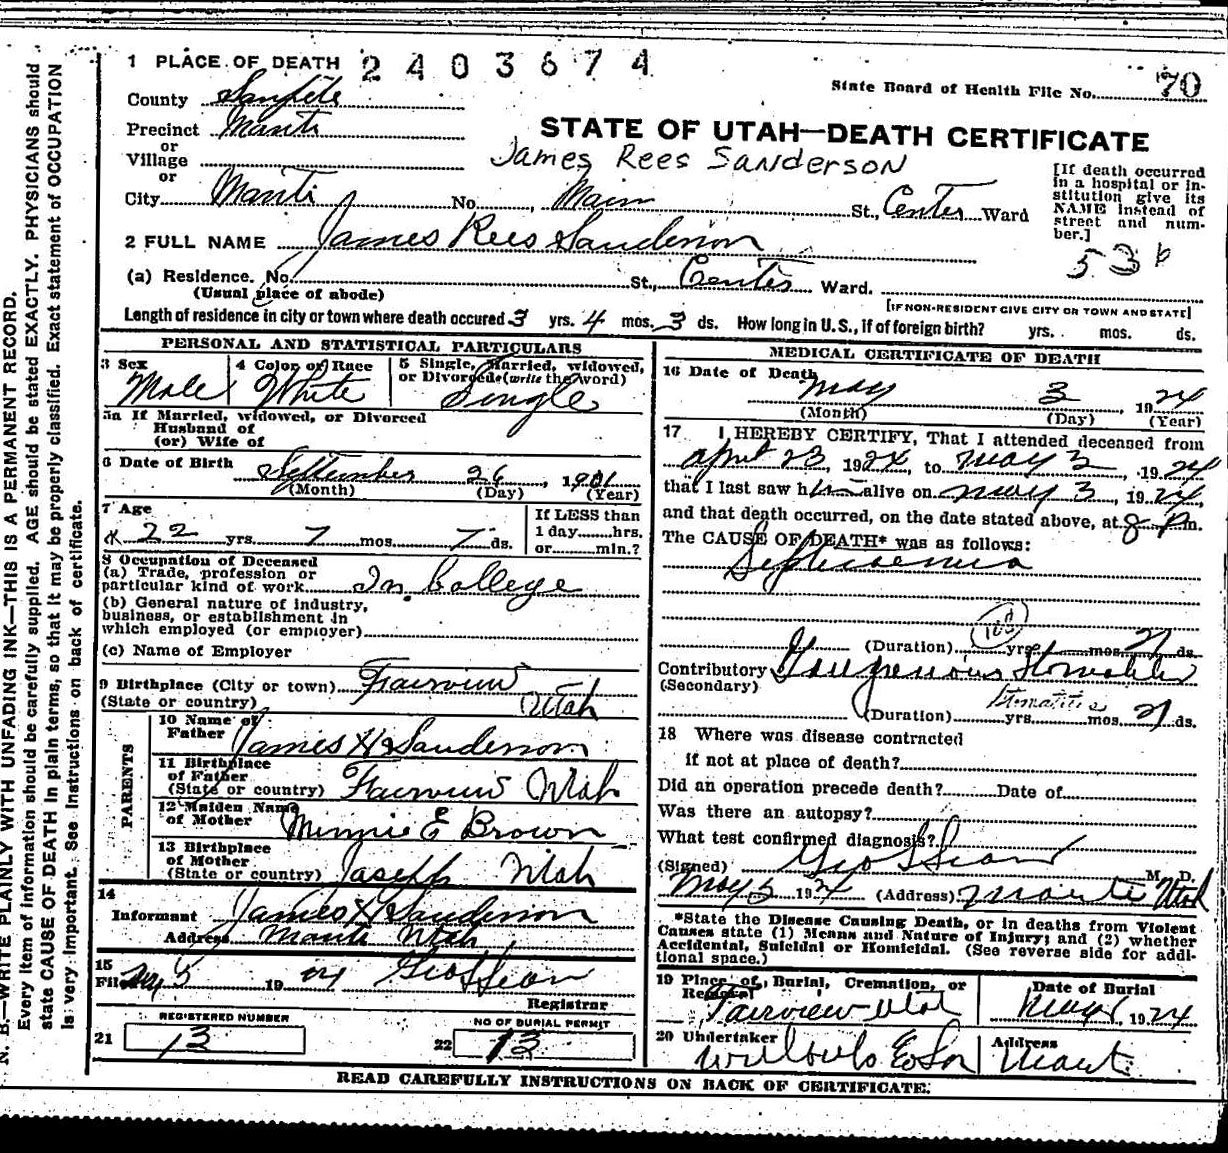 1 PLACE OF DEATH 2403674
State Board of Health File No. 70
County Sanpete
Precinct Manti
or
Village
or
City Manti No. Main St., Center Ward
STATE OF UTAH—DEATH CERTIFICATE
James Rees Sanderson
[If death occurred in a hospital or in-
stitution give its
NAME instead of
street and num-
ber.]
536
2 FULL NAME James Rees Sanderson
(a) Residence. No. St., Center Ward.
(Usual place of abode)
[IF NON-RESIDENT GIVE CITY OR TOWN AND STATE]
Length of residence in city or town where death occured 3 yrs. 4 mos. 3 ds. How long in U.S., if of foreign birth? yrs. mos. ds.
PERSONAL AND STATISTICAL PARTICULARS
3 Sex
Male
4 Color or Race
White
5 Single, Married, widowed,
or Divorced (write the word)
Single
5a If Married, widowed, or Divorced
Husband of
(or) Wife of
6 Date of Birth September 26, 1901
(Month) (Day) (Year)
7 Age
22 yrs. 7 mos. 7 ds.
If LESS than
1 day hrs.
or min.?
8 Occupation of Deceased
(a) Trade, profession or
particular kind of work In College
(b) General nature of industry,
business, or establishment in
which employed (or employer)
(c) Name of Employer
9 Birthplace (City or town) Fairview
(State or country) Utah
PARENTS
10 Name of
Father James H Sanderson
11 Birthplace
of Father
(State or country) Fairview Utah
12 Maiden Name
of Mother Minnie E Brown
13 Birthplace
of Mother
(State or country) Joseph Utah
14
Informant James H Sanderson
Address Manti Utah
15
Filed May 5 1924 Geo L Sears
Registrar
REGISTERED NUMBER
21 13
NO OF BURIAL PERMIT
22 13
MEDICAL CERTIFICATE OF DEATH
16 Date of Death
May 3, 1924
(Month) (Day) (Year)
17 I HEREBY CERTIFY, That I attended deceased from
April 23, 1924, to May 3, 1924
that I last saw him alive on May 3, 1924,
and that death occurred, on the date stated above, at 8 P m.
The CAUSE OF DEATH* was as follows:
Septicaemia
(Duration) yrs. mos. 21 ds.
Contributory Gangrenious
(Secondary)
Stomatitis
(Duration) yrs. mos. 21 ds.
18 Where was disease contracted
if not at place of death?
Did an operation precede death? Date of
Was there an autopsy?
What test confirmed diagnosis?
(Signed) Geo L Sears M. D.
May 5 1924 (Address) Manti Utah
*State the Disease Causing Death, or in deaths from Violent
Causes state (1) Means and Nature of Injury; and (2) whether
Accidental, Suicidal or Homicidal. (See reverse side for addi-
tional space.)
19 Place of, Burial, Cremation, or
Removal
Fairview Utah
Date of Burial
May 1924
20 Undertaker
Address
Manti
READ CAREFULLY INSTRUCTIONS ON BACK OF CERTIFICATE.
N. B.—WRITE PLAINLY WITH UNFADING INK—THIS IS A PERMANENT RECORD.
Every item of information should be carefully supplied. AGE should be stated EXACTLY. PHYSICIANS should
state CAUSE OF DEATH in plain terms, so that it may be properly classified. Exact statement of OCCUPATION
is very important. See instructions on back of certificate.